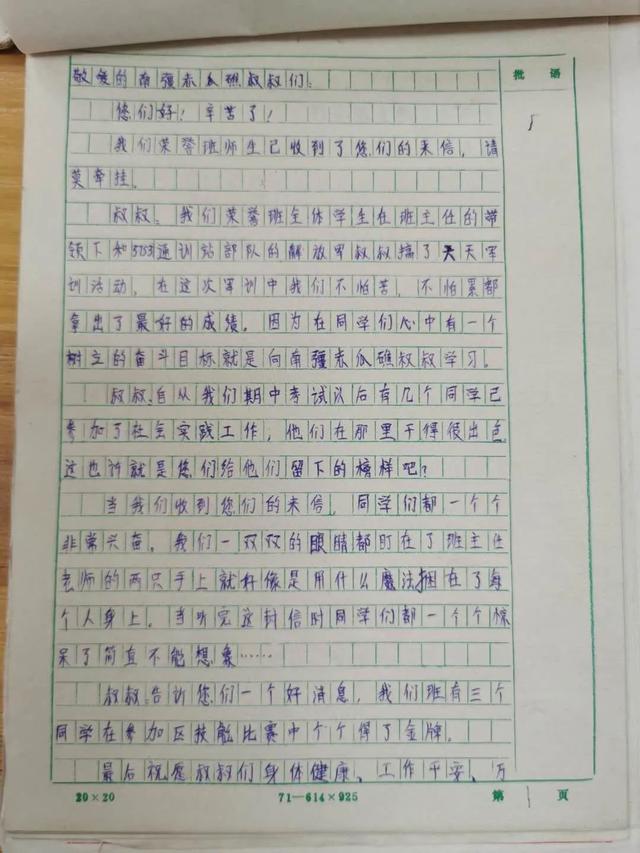 敬爱的南疆赤瓜礁叔叔们：
批 语
您们好！辛苦了！
我们荣誉班师生已收到了您们的来信，请
莫牵挂。
叔叔、我们荣誉班全体学生在班主任的带
领下和5753通训站部队的解放军叔叔搞了天天军
训活动，在这次军训中我们不怕苦，不怕累都
拿出了最好的成绩。因为在同学们心中有一个
树立的奋斗目标就是向南疆赤瓜礁叔叔学习。
叔叔，自从我们期中考试以后有几个同学已
参加了社会实践工作，他们在那里干得很出色
这也许就是您们给他们留下的榜样吧？
当我们收到您们的来信，同学们都一个个
非常兴奋。我们一双双的眼睛都盯在了班主任
老师的两只手上就好像是用什么魔法捆在了每
个人身上。当听完这封信时同学们都一个个惊
呆了简直不能想象……
叔叔告诉您们一个好消息，我们班有三个
同学在参加区技能比赛中个个得了金牌。
最后祝愿叔叔们身体健康、工作平安、万
20×20 71—614×925 第 1 页